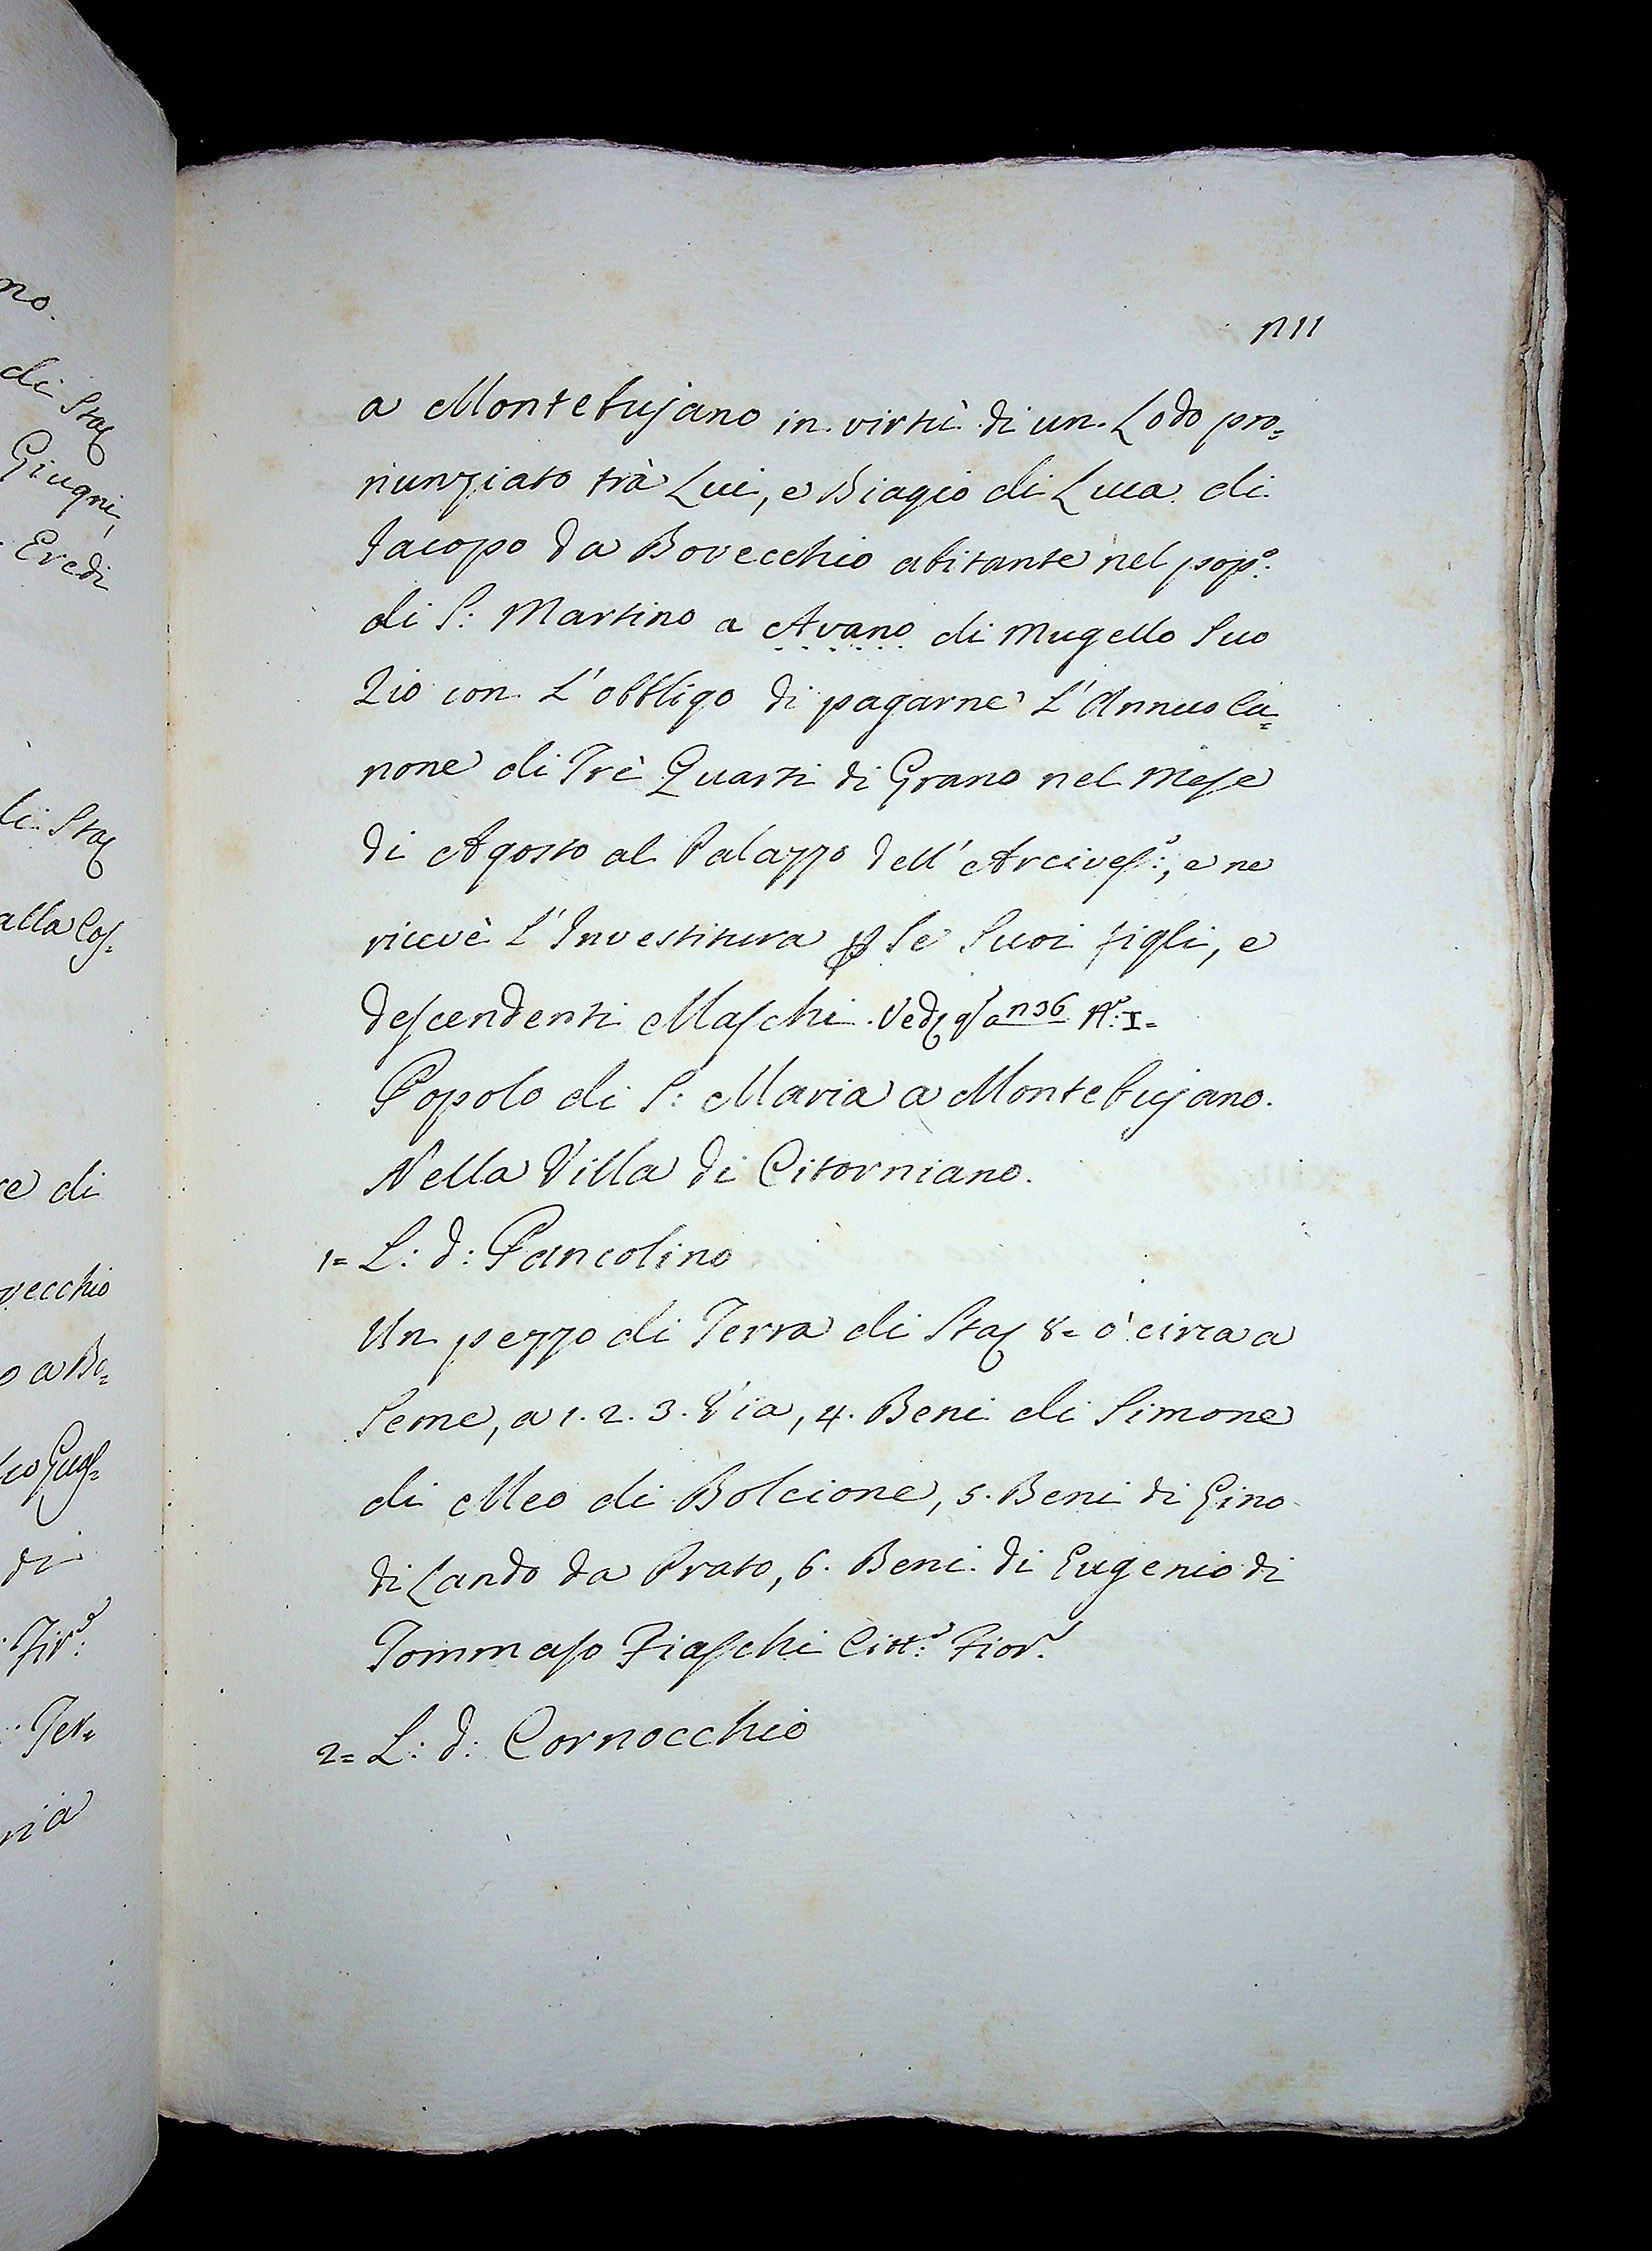 n 11
a Montebujano in virtù di un Lodo pro=
nunziato trà Lui, e Biagio di Luca di
Jacopo da Bovecchio abitante nel pop.º
di S: Martino a Avano di Mugello Suo
Zio con L'obbligo di pagarne L'Annuo Ca=
none di Trè Quarti di Grano nel Mese
di Agosto al Palazzo dell'Arcives.º:, e ne
ricevè L'Investitura p Se Suoi figli, e
descendenti Maschi. Ved n 36 N.º I=
Popolo di S: Maria a Montebujano.
Nella Villa di Citorniano.
1= L: d: Pancolino
Un pezzo di Terra di Sta 8= ò circa a
Seme, a 1. 2. 3. Via, 4. Beni di Simone
di Meo di Bolcione, 5. Beni di Gino
di Lando da Prato, 6. Beni di Eugenio di
Tommaso Fiaschi Citt.º: Fior.º
2= L: d: Cornocchio
no.
di Sta
Giugni,
Eredi
di Sta
alla Cos=
re di
vecchio
o a Bo=
di
Ter=
ria